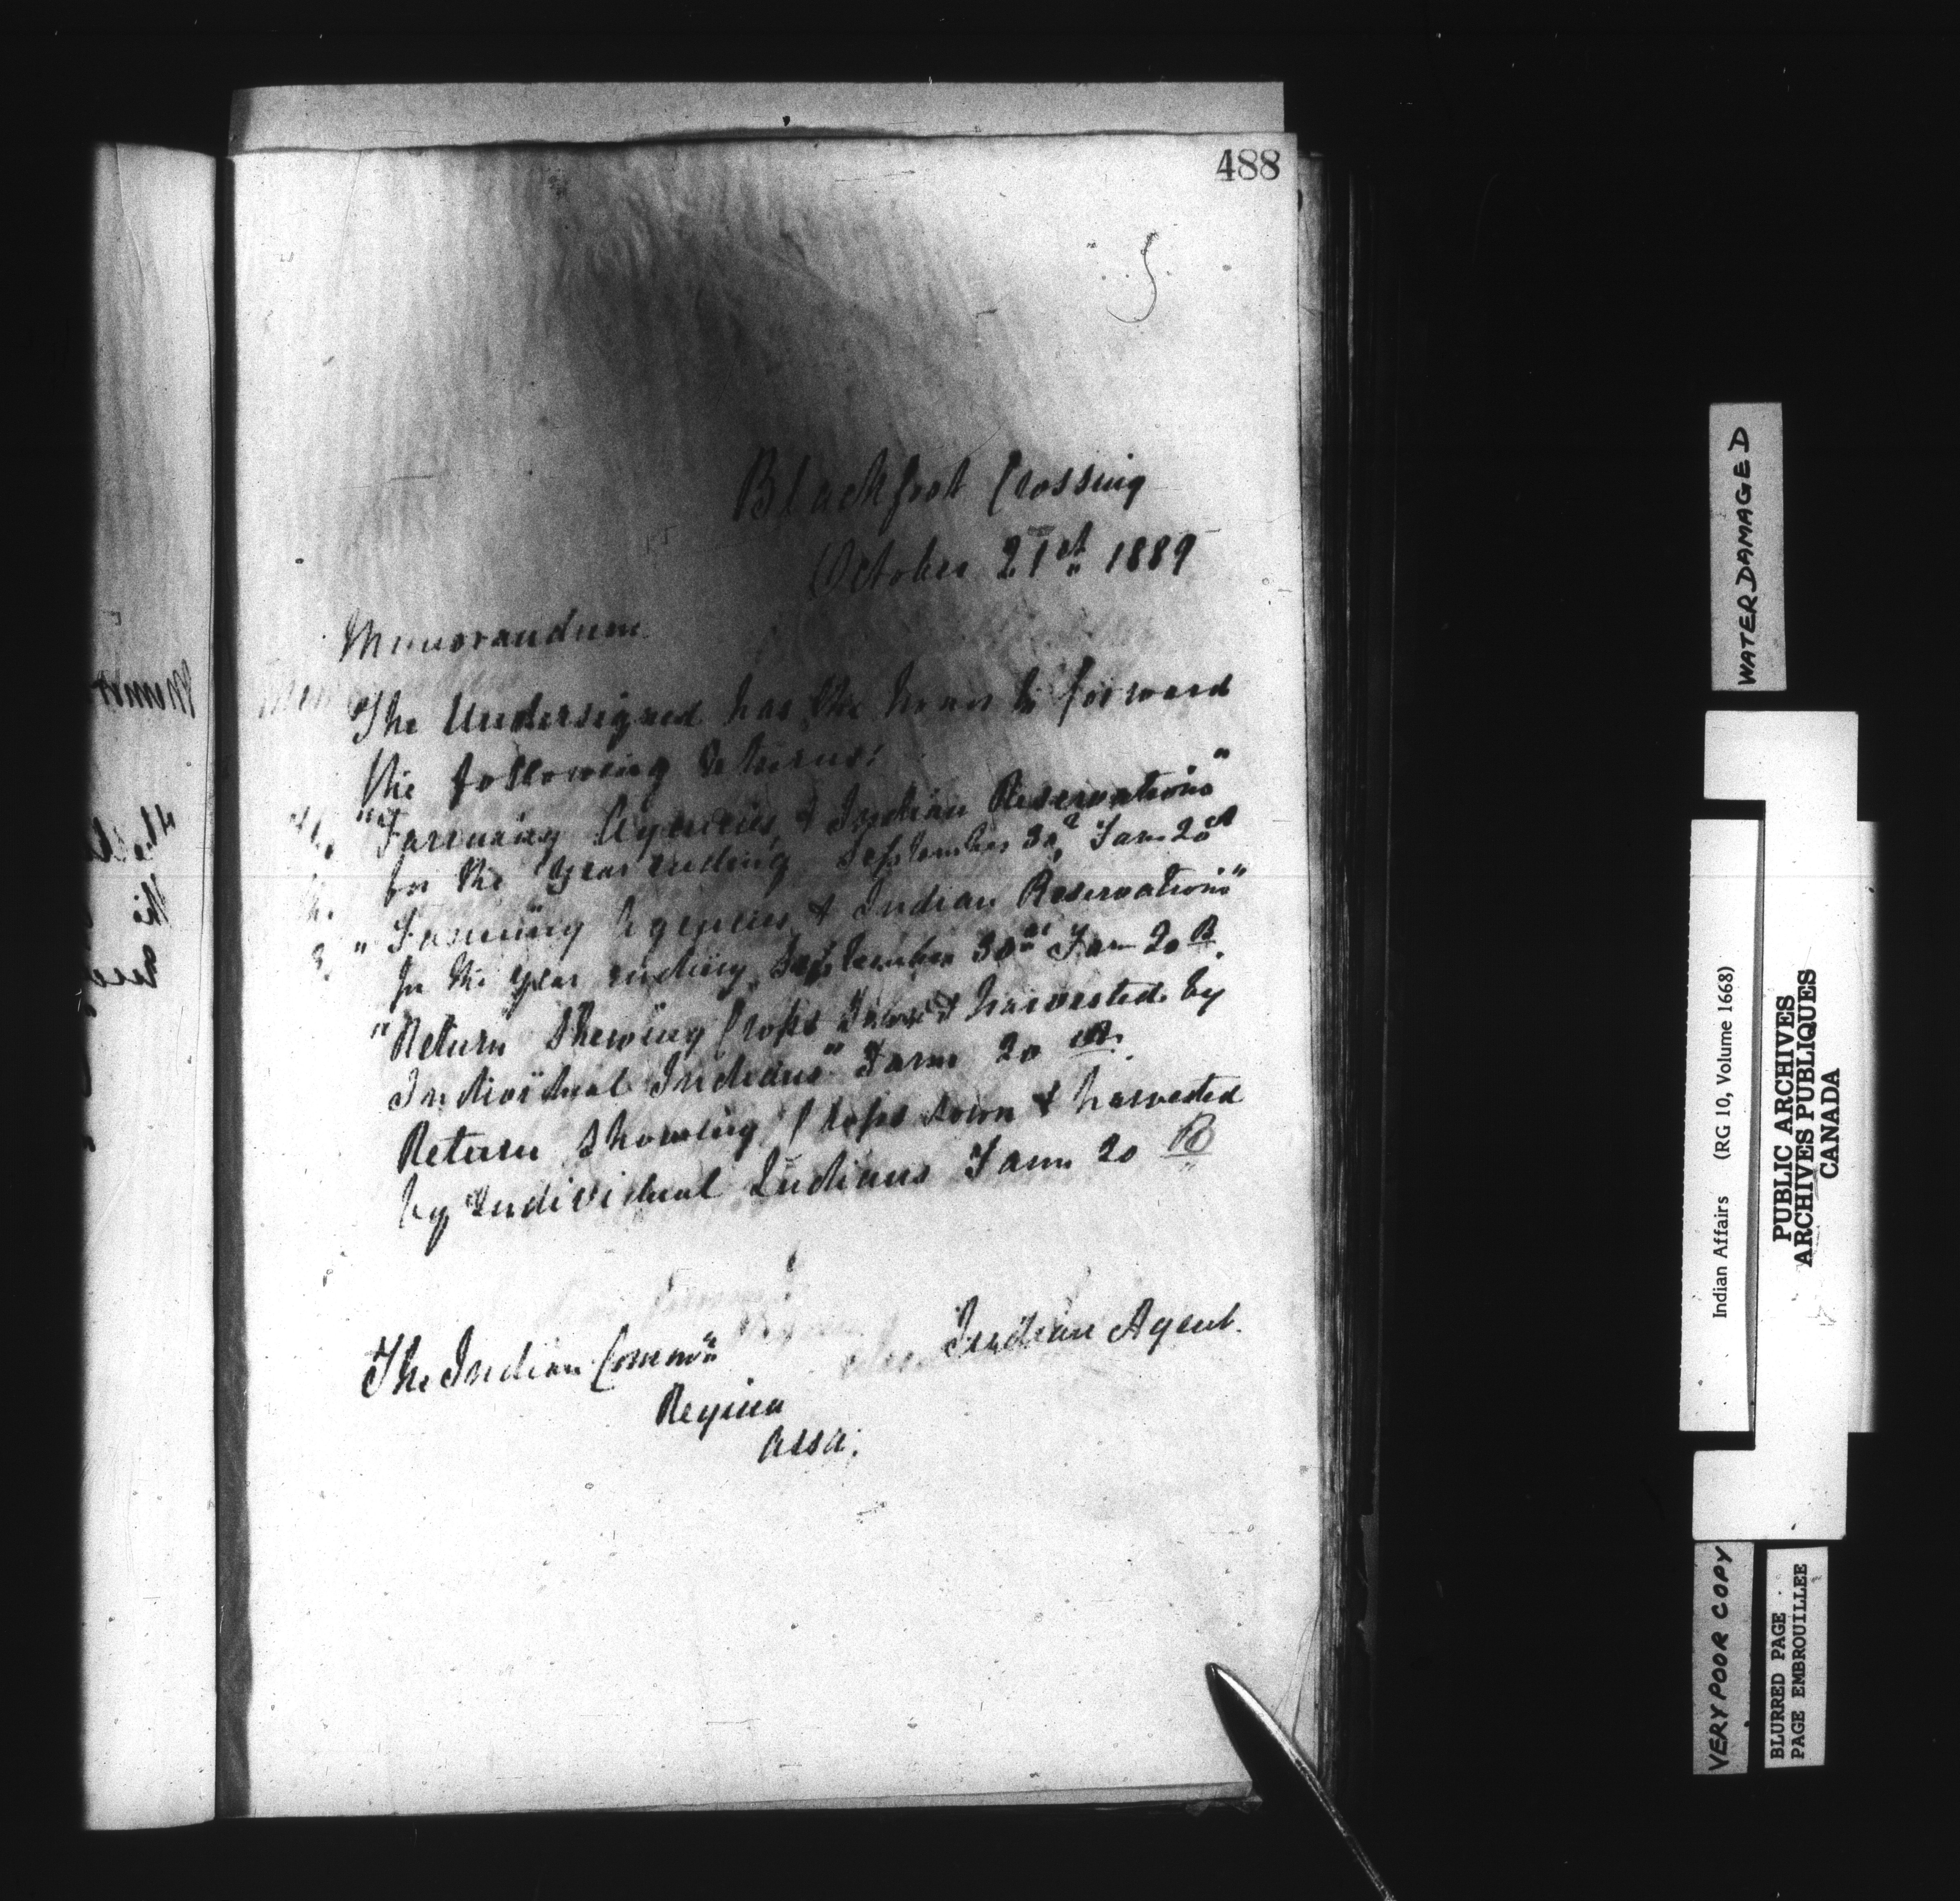 488
Blackfoot Crossing
October 21st 1889
Memorandum
The Undersigned has the honor to forward
the following Returns:
"Farming Agencies & Indian Reservations"
for the Year ending September 30th Farm 20 A
"Farming Agencies & Indian Reservations"
for the Year ending September 30th Farm 20 B.
"Return Shewing Crops Sown & harvested by
Individual Indians" Farm 20 A.
Return Showing Crops sown & harvested
by Individual Indians Farm 20 B
Indian Agent.
The Indian Commr
Regina
Assa.
WATER DAMAGED
Indian Affairs (RG 10, Volume 1668)
PUBLIC ARCHIVES
ARCHIVES PUBLIQUES
CANADA
VERY POOR COPY
BLURRED PAGE
PAGE EMBROUILLEE